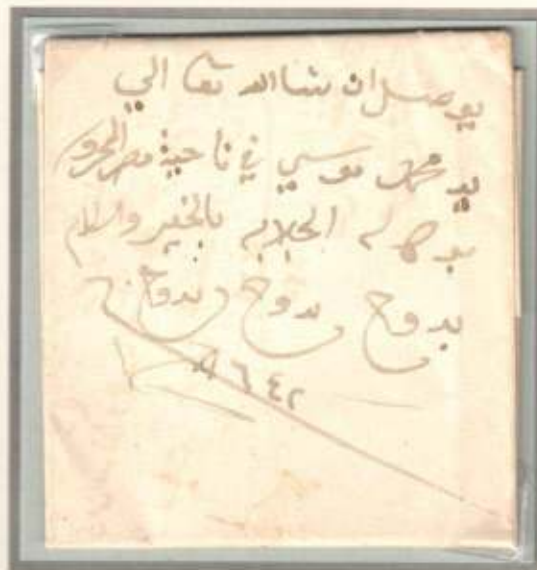 يوصل ان شاالله تعالي
يد محمد موسي في ناحية مصر المحرو
الجلابه بالخير والسلام
بدوح بدوح بدوح
٨٦٤٢